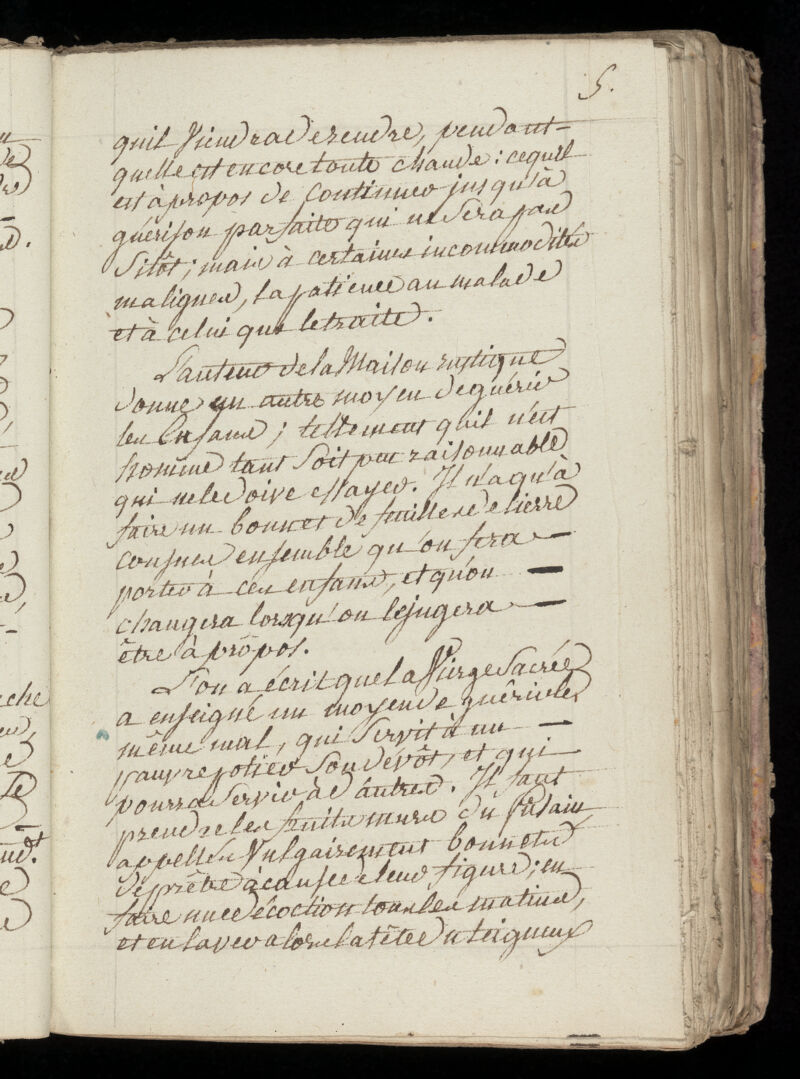 5.
quil Viendra de rendre, pendant
quelle est encore toute chaude : cequil
est à propos de Continuer jusqu'à
guérison parfaite qui ne Sera pas
Sitôt ; mais à certaines incommodités
malignes, la patience au malade
et à celui qui le traite.
L'auteur de la Maison rustique
donne un autre moyen de guérir
les Enfans ; tellement quil n'est
homme tant Soit peu raisonnable
qui ne le doive essayer. Il n'a qu'à
faire un bonnet de feuilles de lierre
consues ensemble qu'on fera —
porter à ces enfans, et qu'on —
changera lorsqu'on le jugera —
être à propos.
L'on a écrit que la Vierge Sacrée
a enseigné un moyen de guérir le
même mal, qui Servit à un —
pauvre potier Son dévôt, et qui
pourra Servir à d'autres. Il faut
prendre les fruits murs du fusain,
appellés Vulgairement bonnets
de prêtre à cause de leur figure ; en
faire une décoction tous les matins,
et en laver alors la tête du teigneux